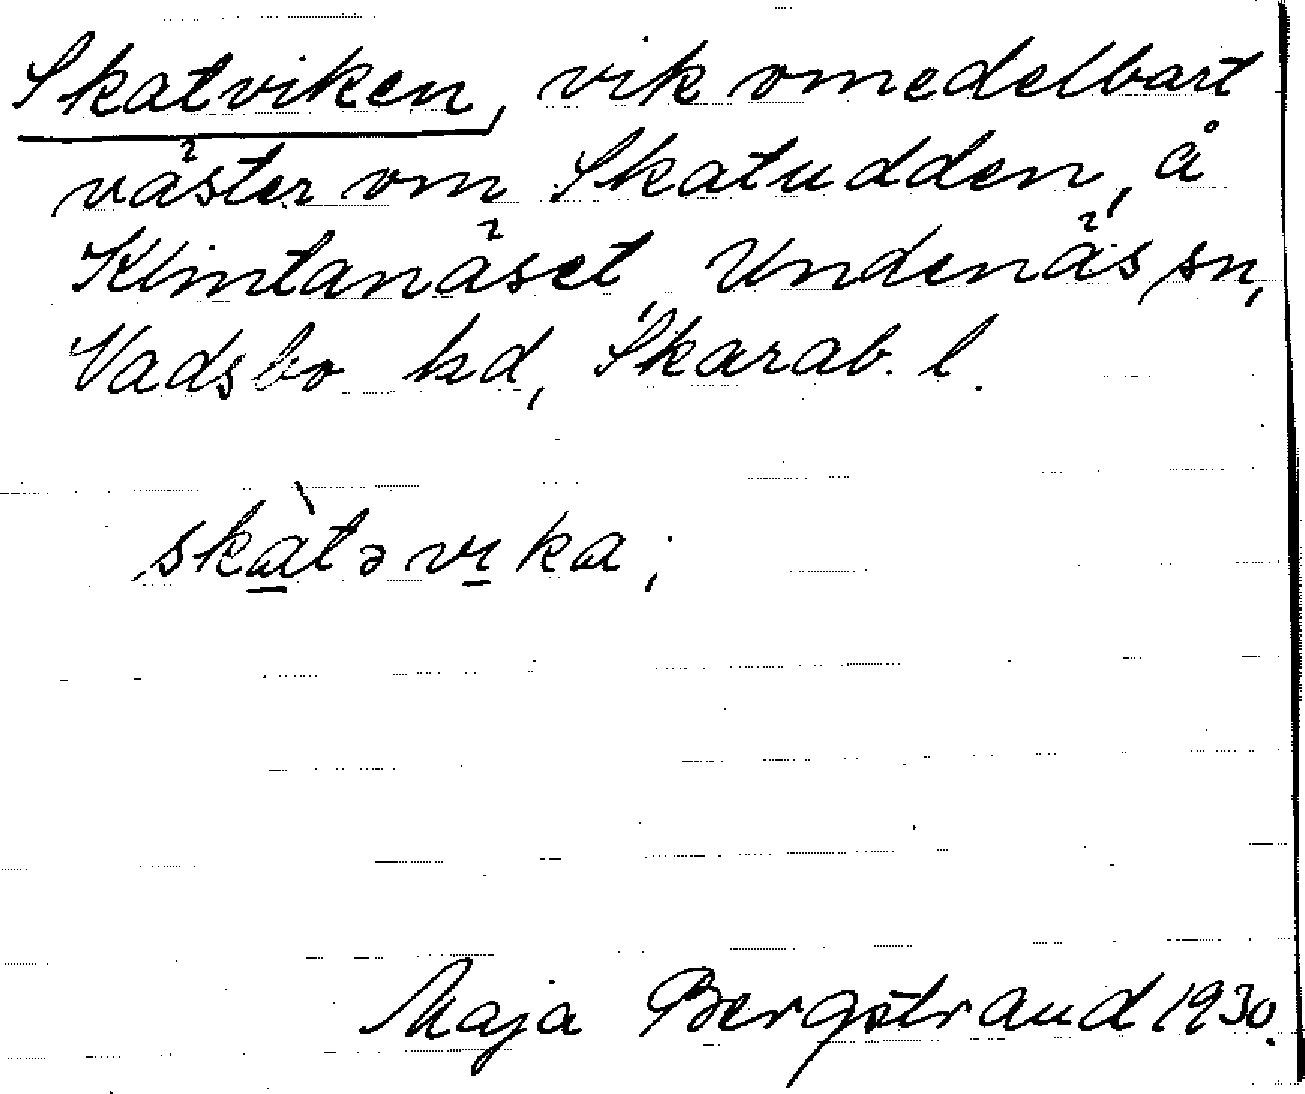 Skatviken, vik omedelbart
väster om Skatudden, å
Klintanäset, Undenäs sn,
Vadsbo hd, Skarab. l.
skàtəvıka;
Maja Bergstrand 1930.